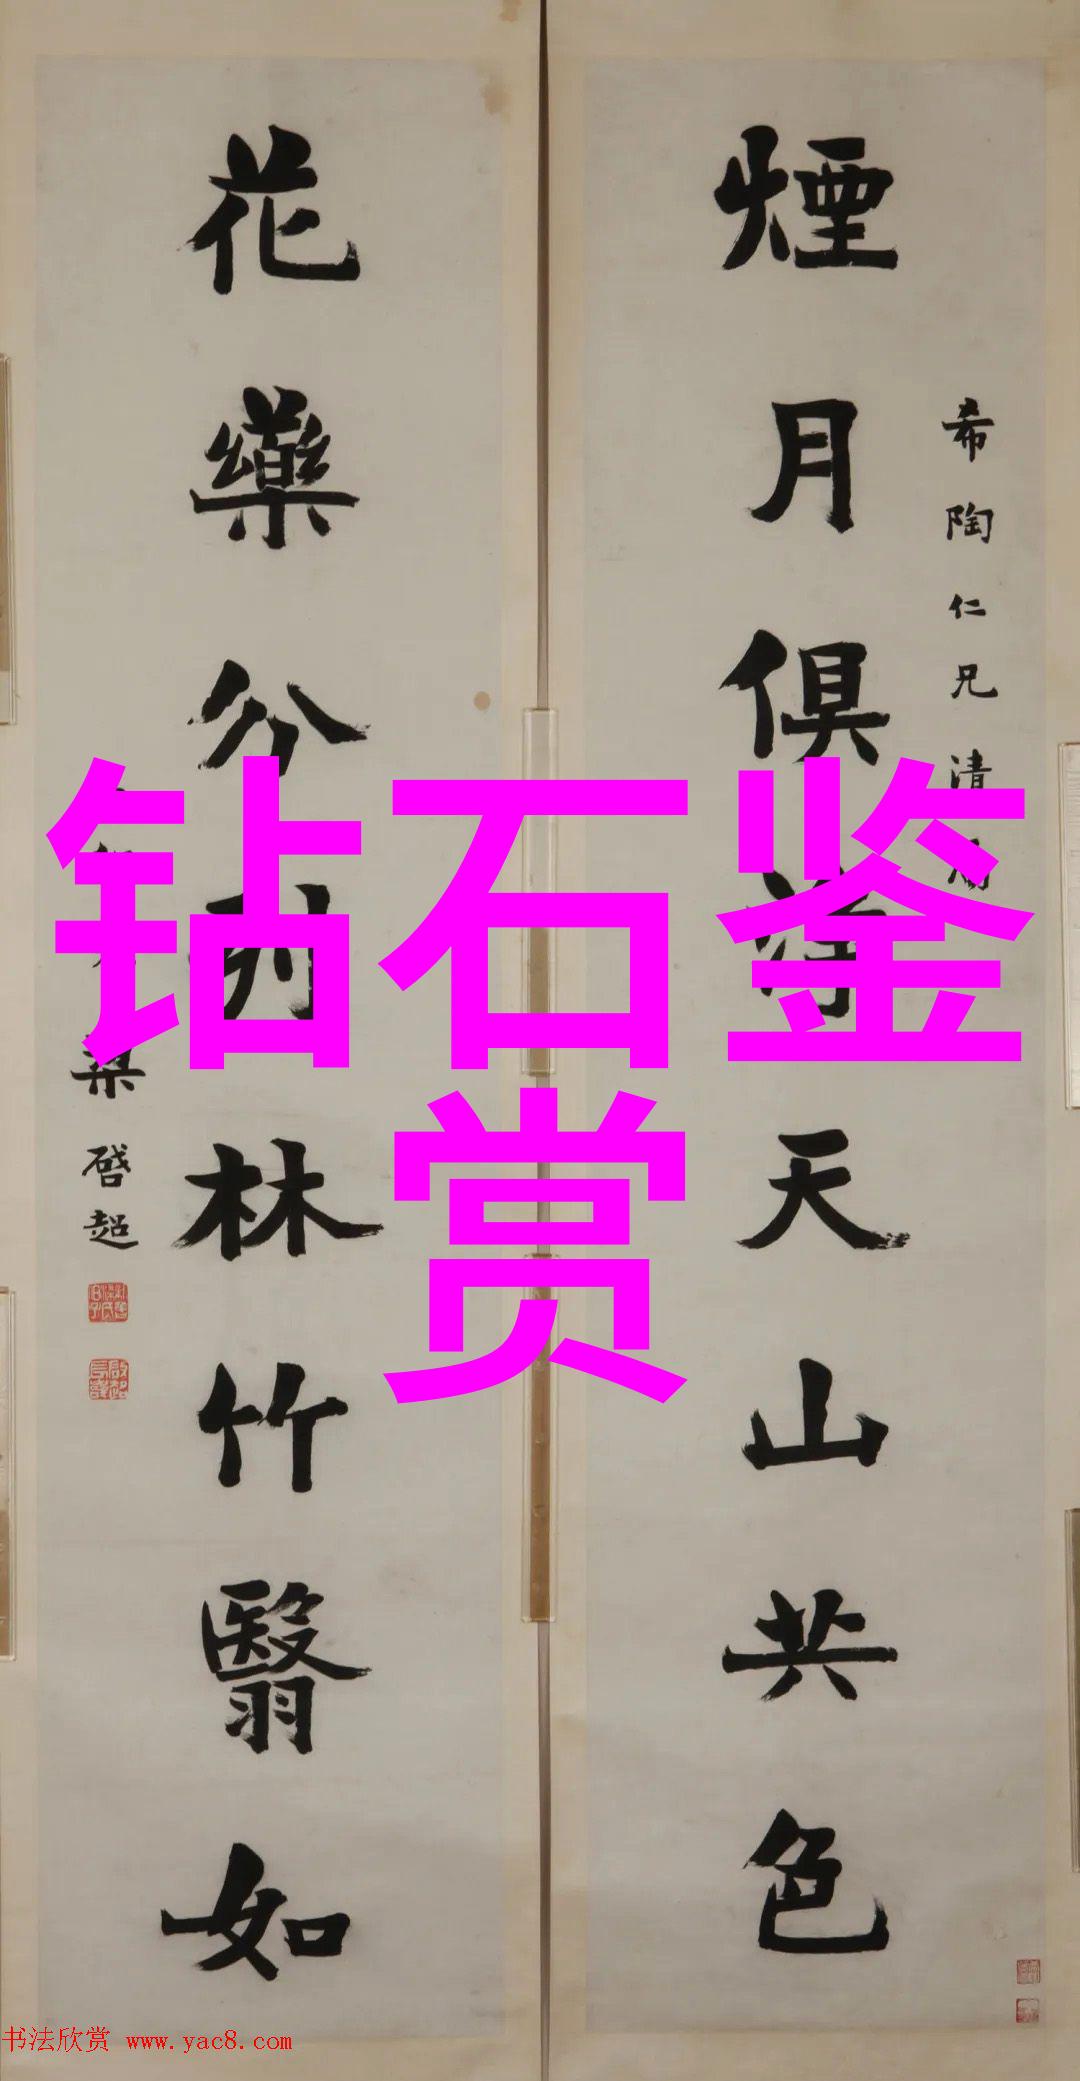 钻石鉴
赏
希陶仁兄清
煙月俱淨天山共色
花藥分列林竹翳如
梁啓超
书法欣赏 www.yac8.com